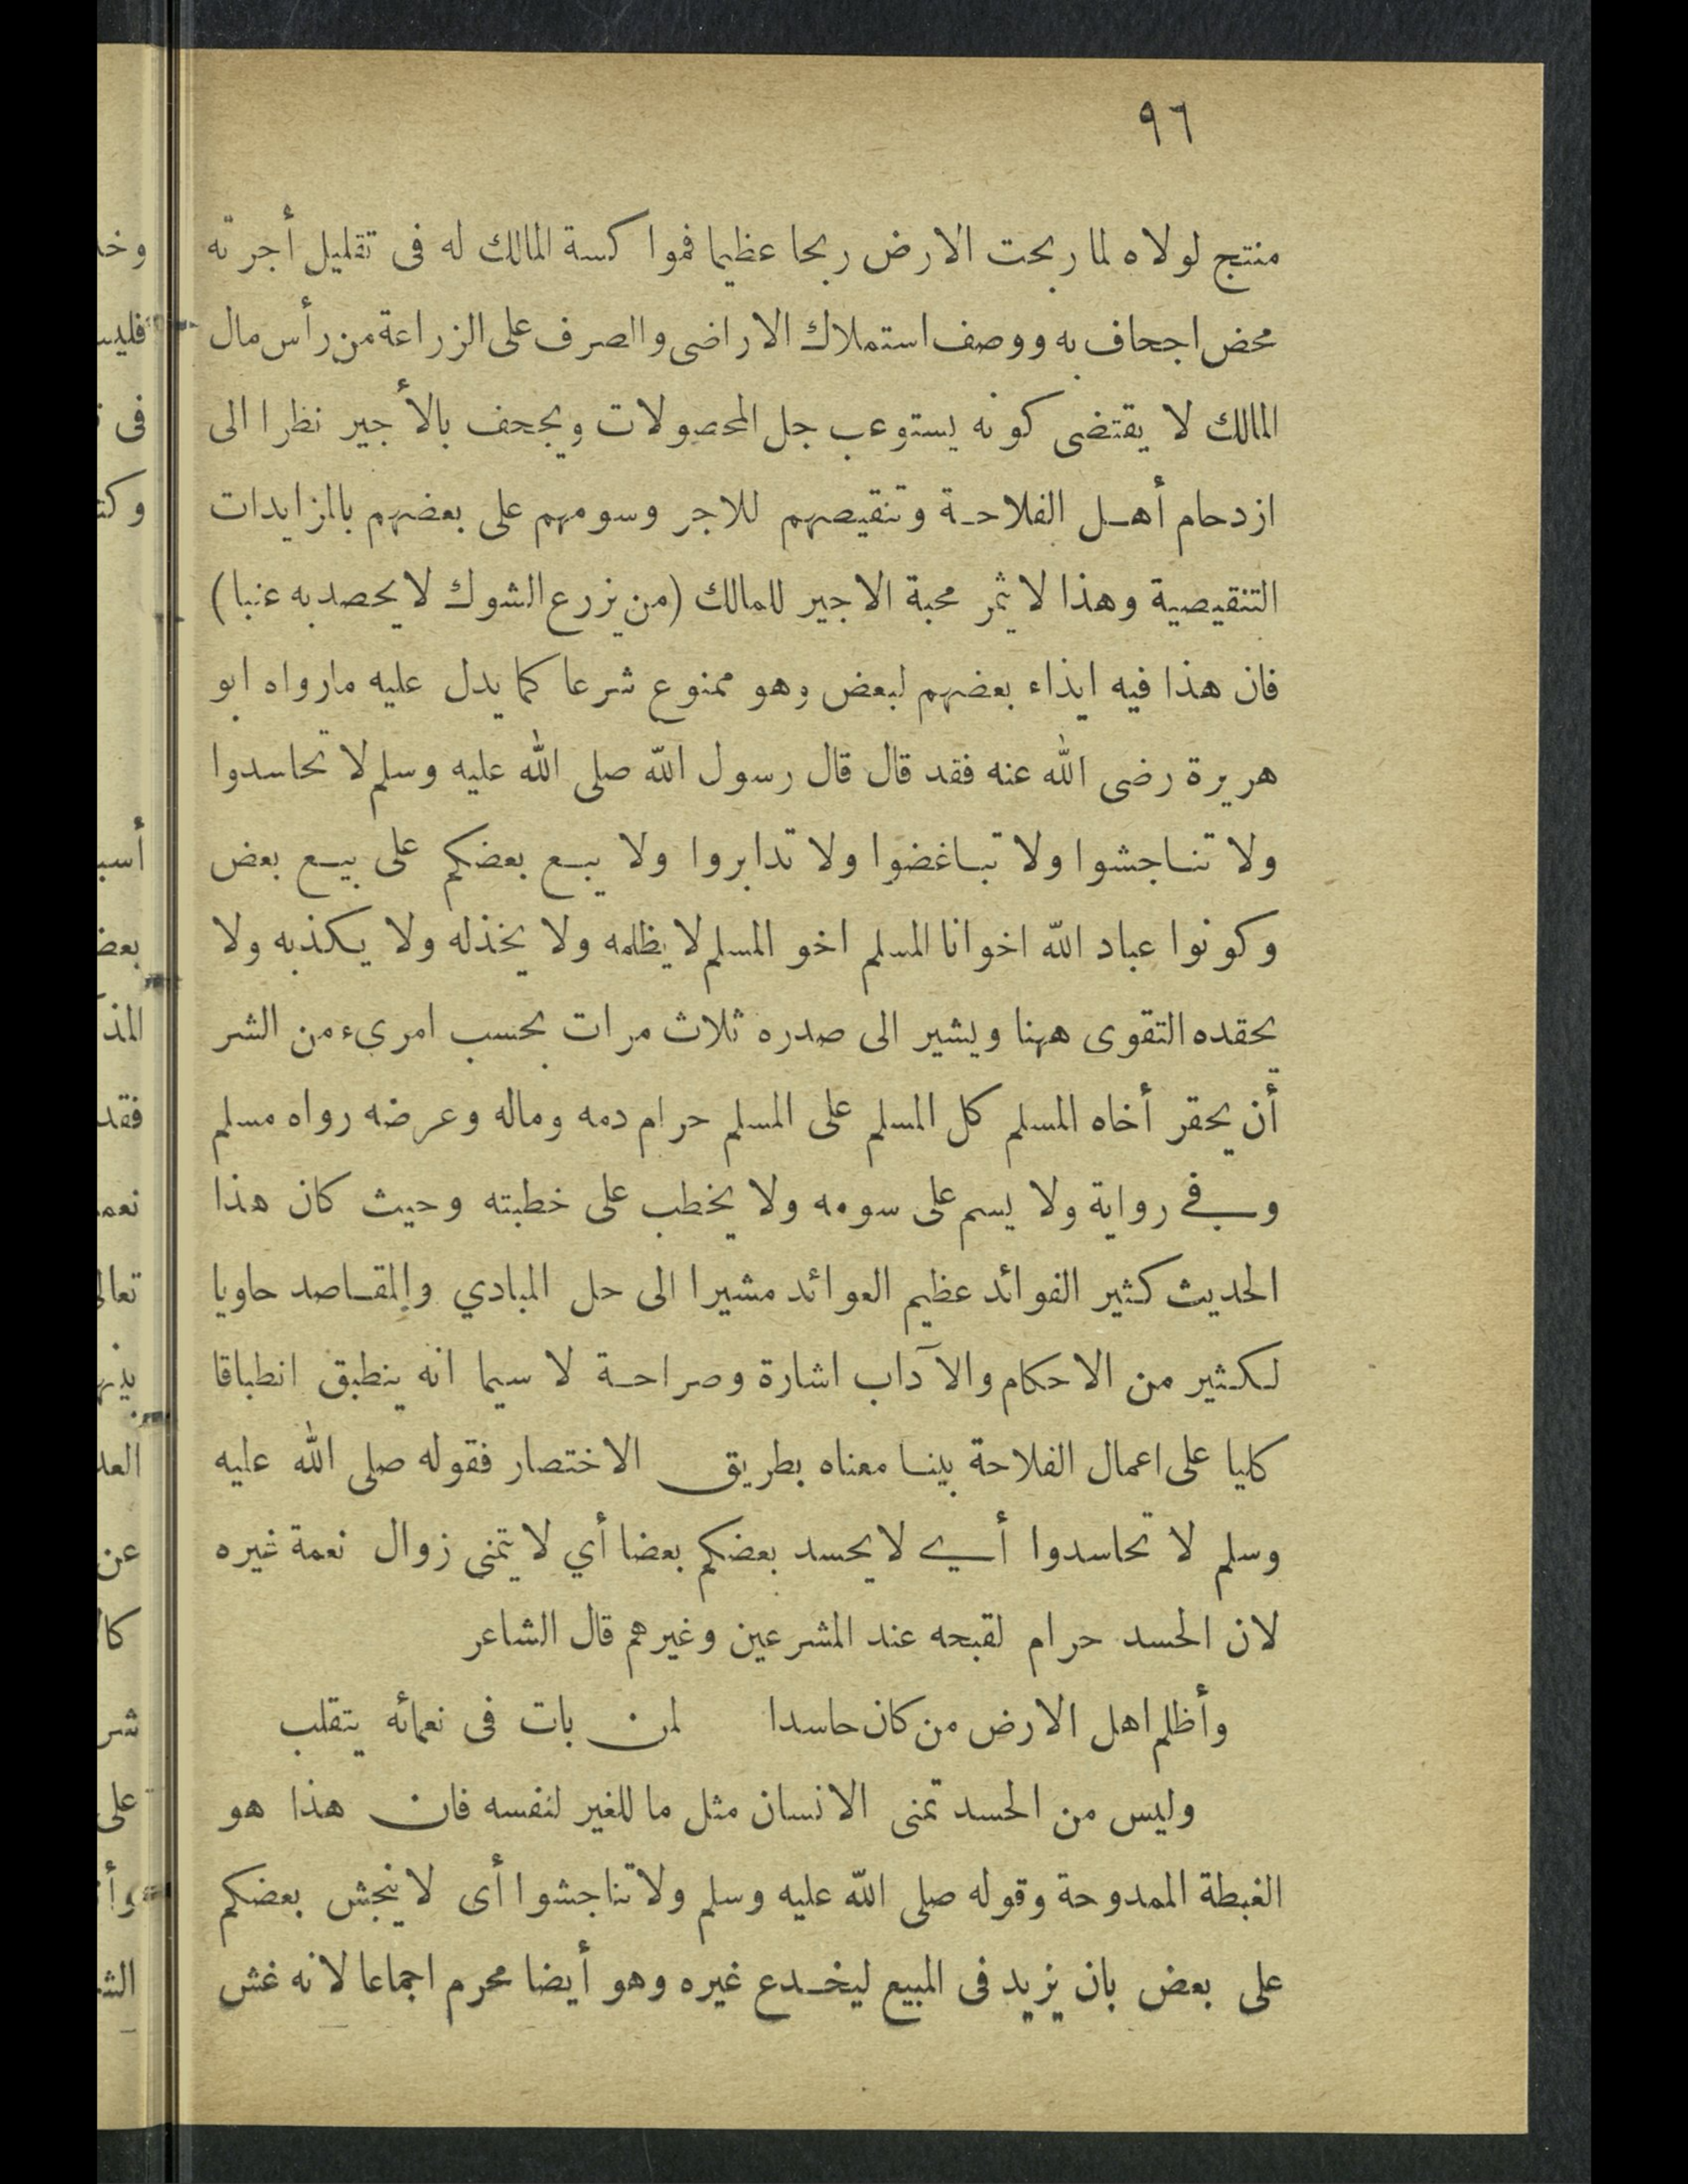 ٩٦
منتج لولاه لما ربحت الارض ربحا عظيما فموا كسة المالك له فى تقليل أجرته
محض اجحاف به ووصف استملاك الاراضى والصرف على الزراعة من رأس مال
المالك لا يقتضى كونه يستوعب جل المحصولات ويجحف بالأجير نظرا الى
ازدحام أهل الفلاحة وتنقيصهم للاجر وسومهم على بعضهم بالمزايدات
التنقيصية وهذا لا يثمر محبة الاجير للمالك (من يزرع الشوك لا يحصد به عنبا)
فان هذا فيه ايذاء بعضهم لبعض وهو ممنوع شرعا كما يدل عليه مارواه ابو
هريرة رضى الله عنه فقد قال قال رسول الله صلى الله عليه وسلم لا تحاسدوا
ولا تناجشوا ولا تباغضوا ولا تدابروا ولا يبع بعضكم على بيع بعض
وكونوا عباد الله اخوانا المسلم اخو المسلم لا يظلمه ولا يخذله ولا يكذبه ولا
يحقده التقوى ههنا ويشير الى صدره ثلاث مرات بحسب امرىء من الشر
أن يحقر أخاه المسلم كل المسلم على المسلم حرام دمه وماله وعرضه رواه مسلم
وفي رواية ولا يسم على سومه ولا يخطب على خطبته وحيث كان هذا
الحديث كثير الفوائد عظيم العوائد مشيرا الى حل المبادي والمقاصد حاويا
لكثير من الاحكام والآداب اشارة وصراحة لا سيما انه ينطبق انطباقا
كليا على اعمال الفلاحة بينا معناه بطريق الاختصار فقوله صلى الله عليه
وسلم لا تحاسدوا أي لا يحسد بعضكم بعضا أي لا يتمنى زوال نعمة غيره
لان الحسد حرام لقبحه عند المشرعين وغيرهم قال الشاعر
وأظلم اهل الارض من كان حاسدا لمن بات فى نعمائه يتقلب
وليس من الحسد تمنى الانسان مثل ما للغير لنفسه فان هذا هو
الغبطة الممدوحة وقوله صلى الله عليه وسلم ولا تناجشوا أى لا ينجش بعضكم
على بعض بان يزيد فى المبيع ليخدع غيره وهو أيضا محرم اجماعا لانه غش